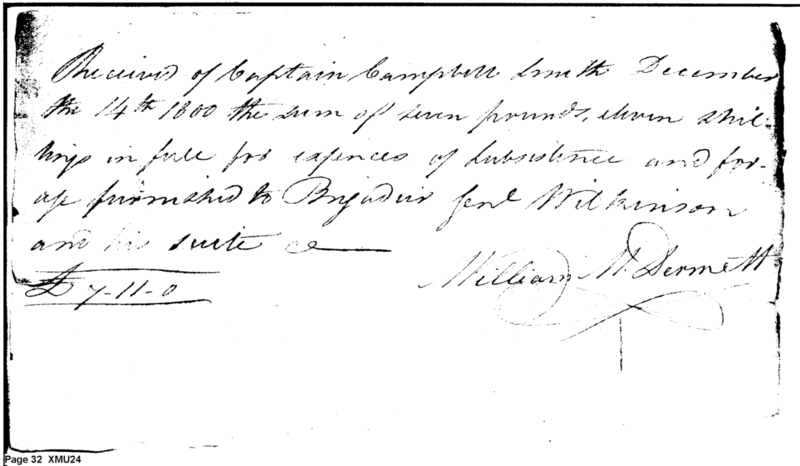 Received of Captain Campbell Smith December
the 14th 1800 the sum of seven pounds, eleven shil-
lings in full for expences of subsistence and for-
age furnished to Brigadier Genl Wilkinson
and his suite
£ 7-11-0
William McDermett
Page 32 XMU24